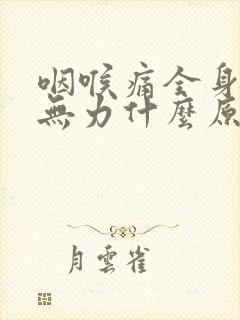 咽喉痛全身
無力什麼原
月雲雀